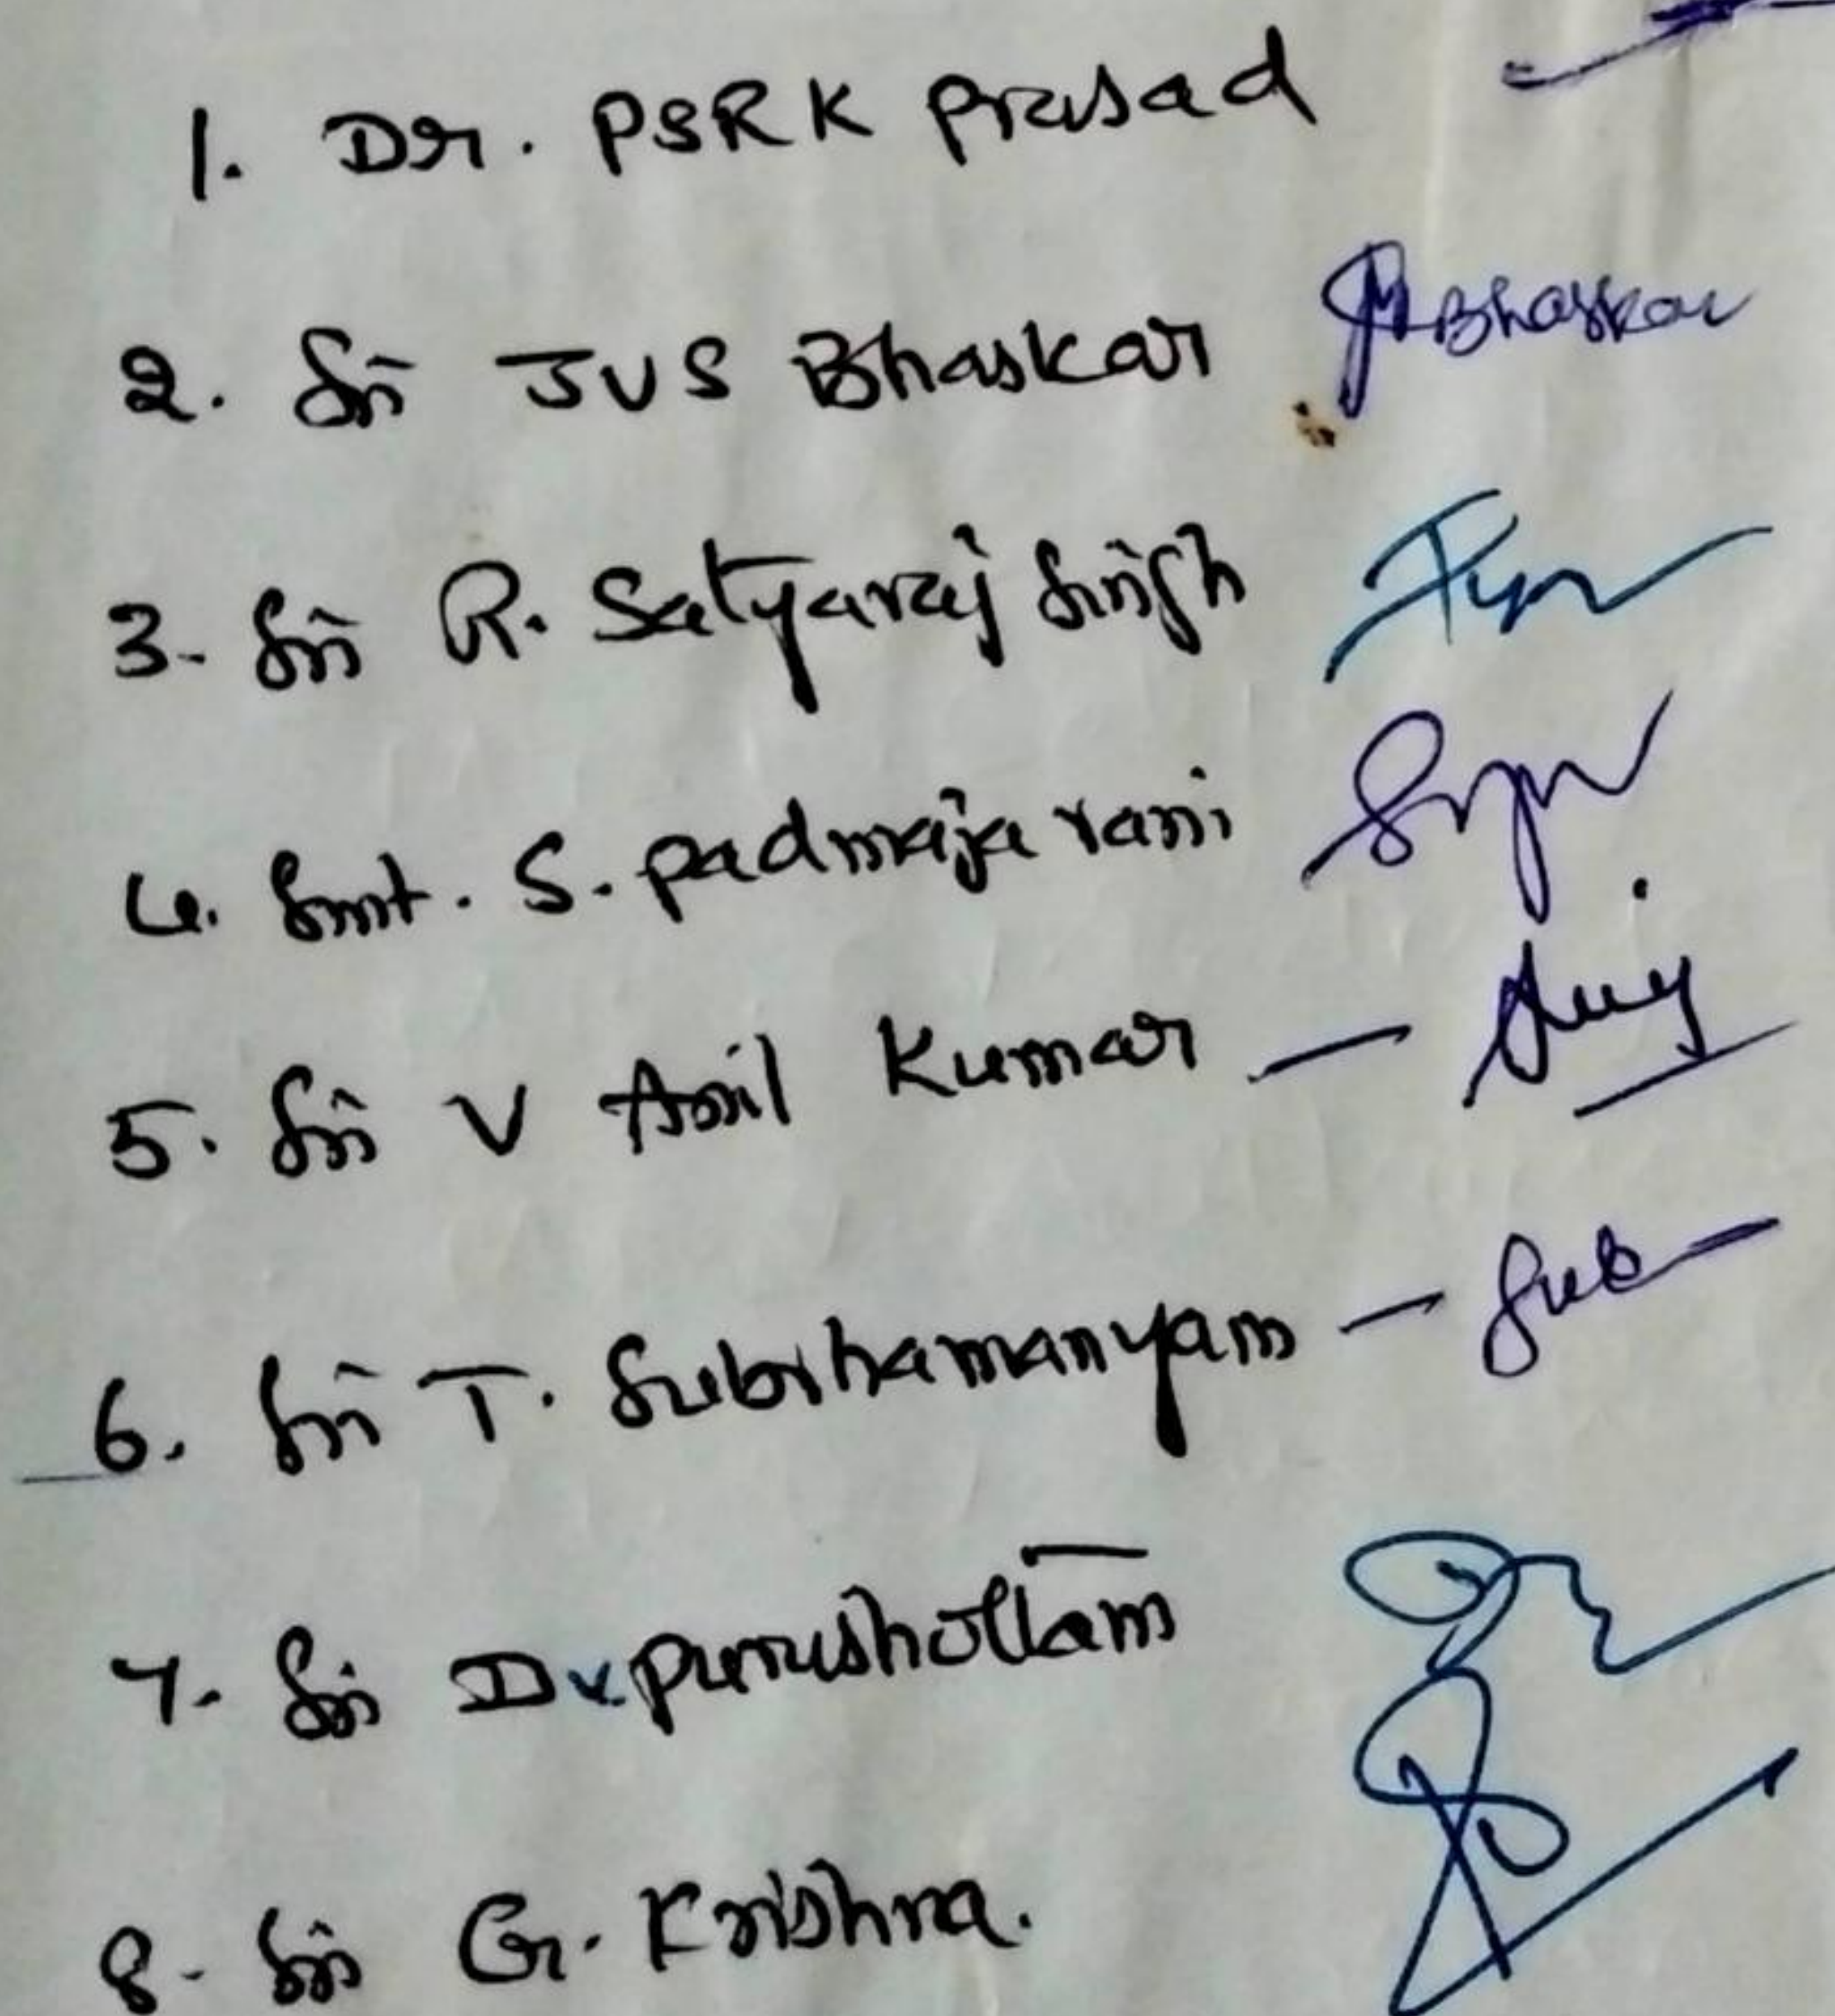 1. Dr. PSRK prasad
2. Sri JVS Bhaskar Bhaskar
3- Sri R. Satyaraj Singh
4. Smt. S. padmaja rani
5. Sri V Anil Kumar —
6. Sri T. Subrhamanyam — Sub
7. Sri DV purushottam
8- Sri G. Krishna.